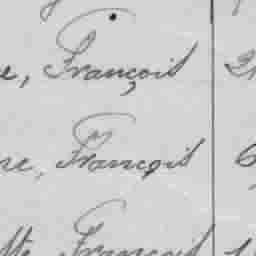 e, François
ne, François
tte, François